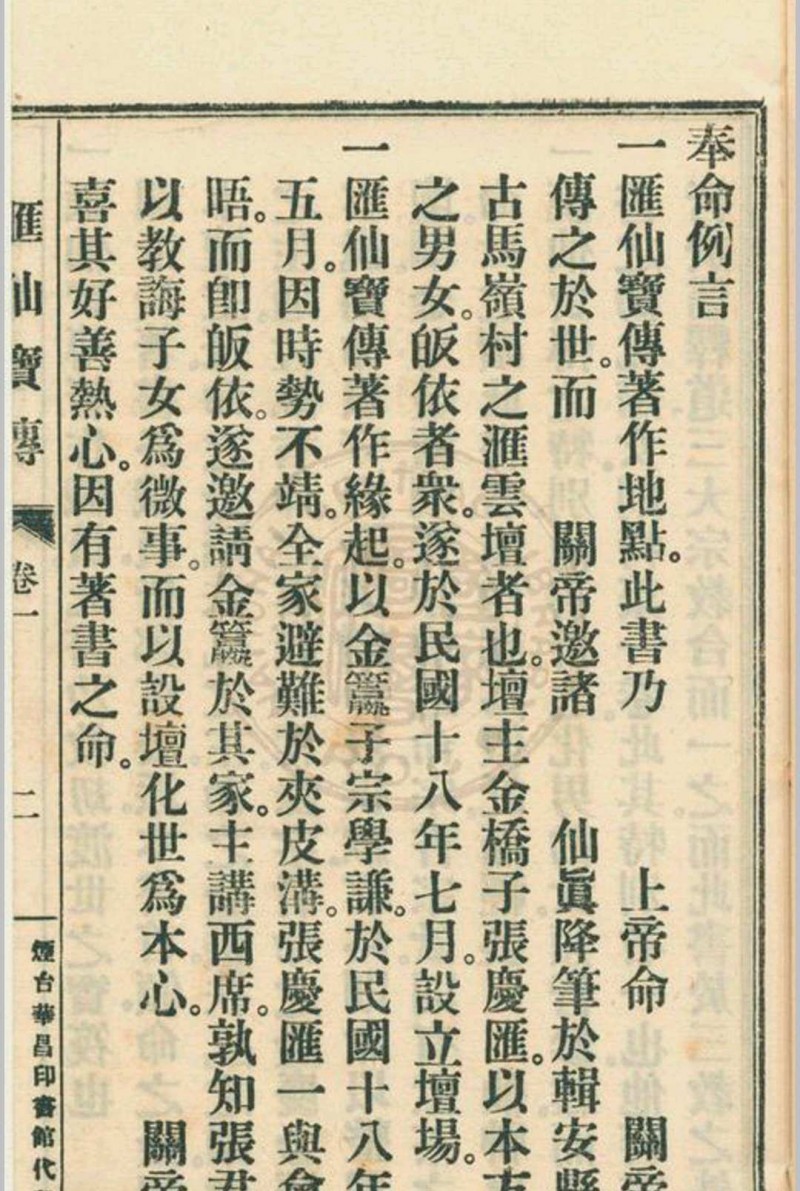 奉命例言
一匯仙寶傳著作地點。此書乃　上帝命　關帝
傳之於世。而　關帝邀諸　仙眞降筆於輯安縣
古馬嶺村之滙雲壇者也。壇主金橋子張慶匯。以本方
之男女。皈依者衆。遂於民國十八年七月。設立壇場。
一匯仙寶傳著作緣起。以金籯子宗學謙。於民國十八年
五月。因時勢不靖。全家避難於夾皮溝。張慶匯一與會
晤。而卽皈依。遂邀請金籯於其家。主講西席。孰知張君
以敎誨子女爲微事。而以設壇化世爲本心。　關帝
喜其好善熱心。因有著書之命。
匯仙寶傳　卷一　二　煙台華昌印書館代